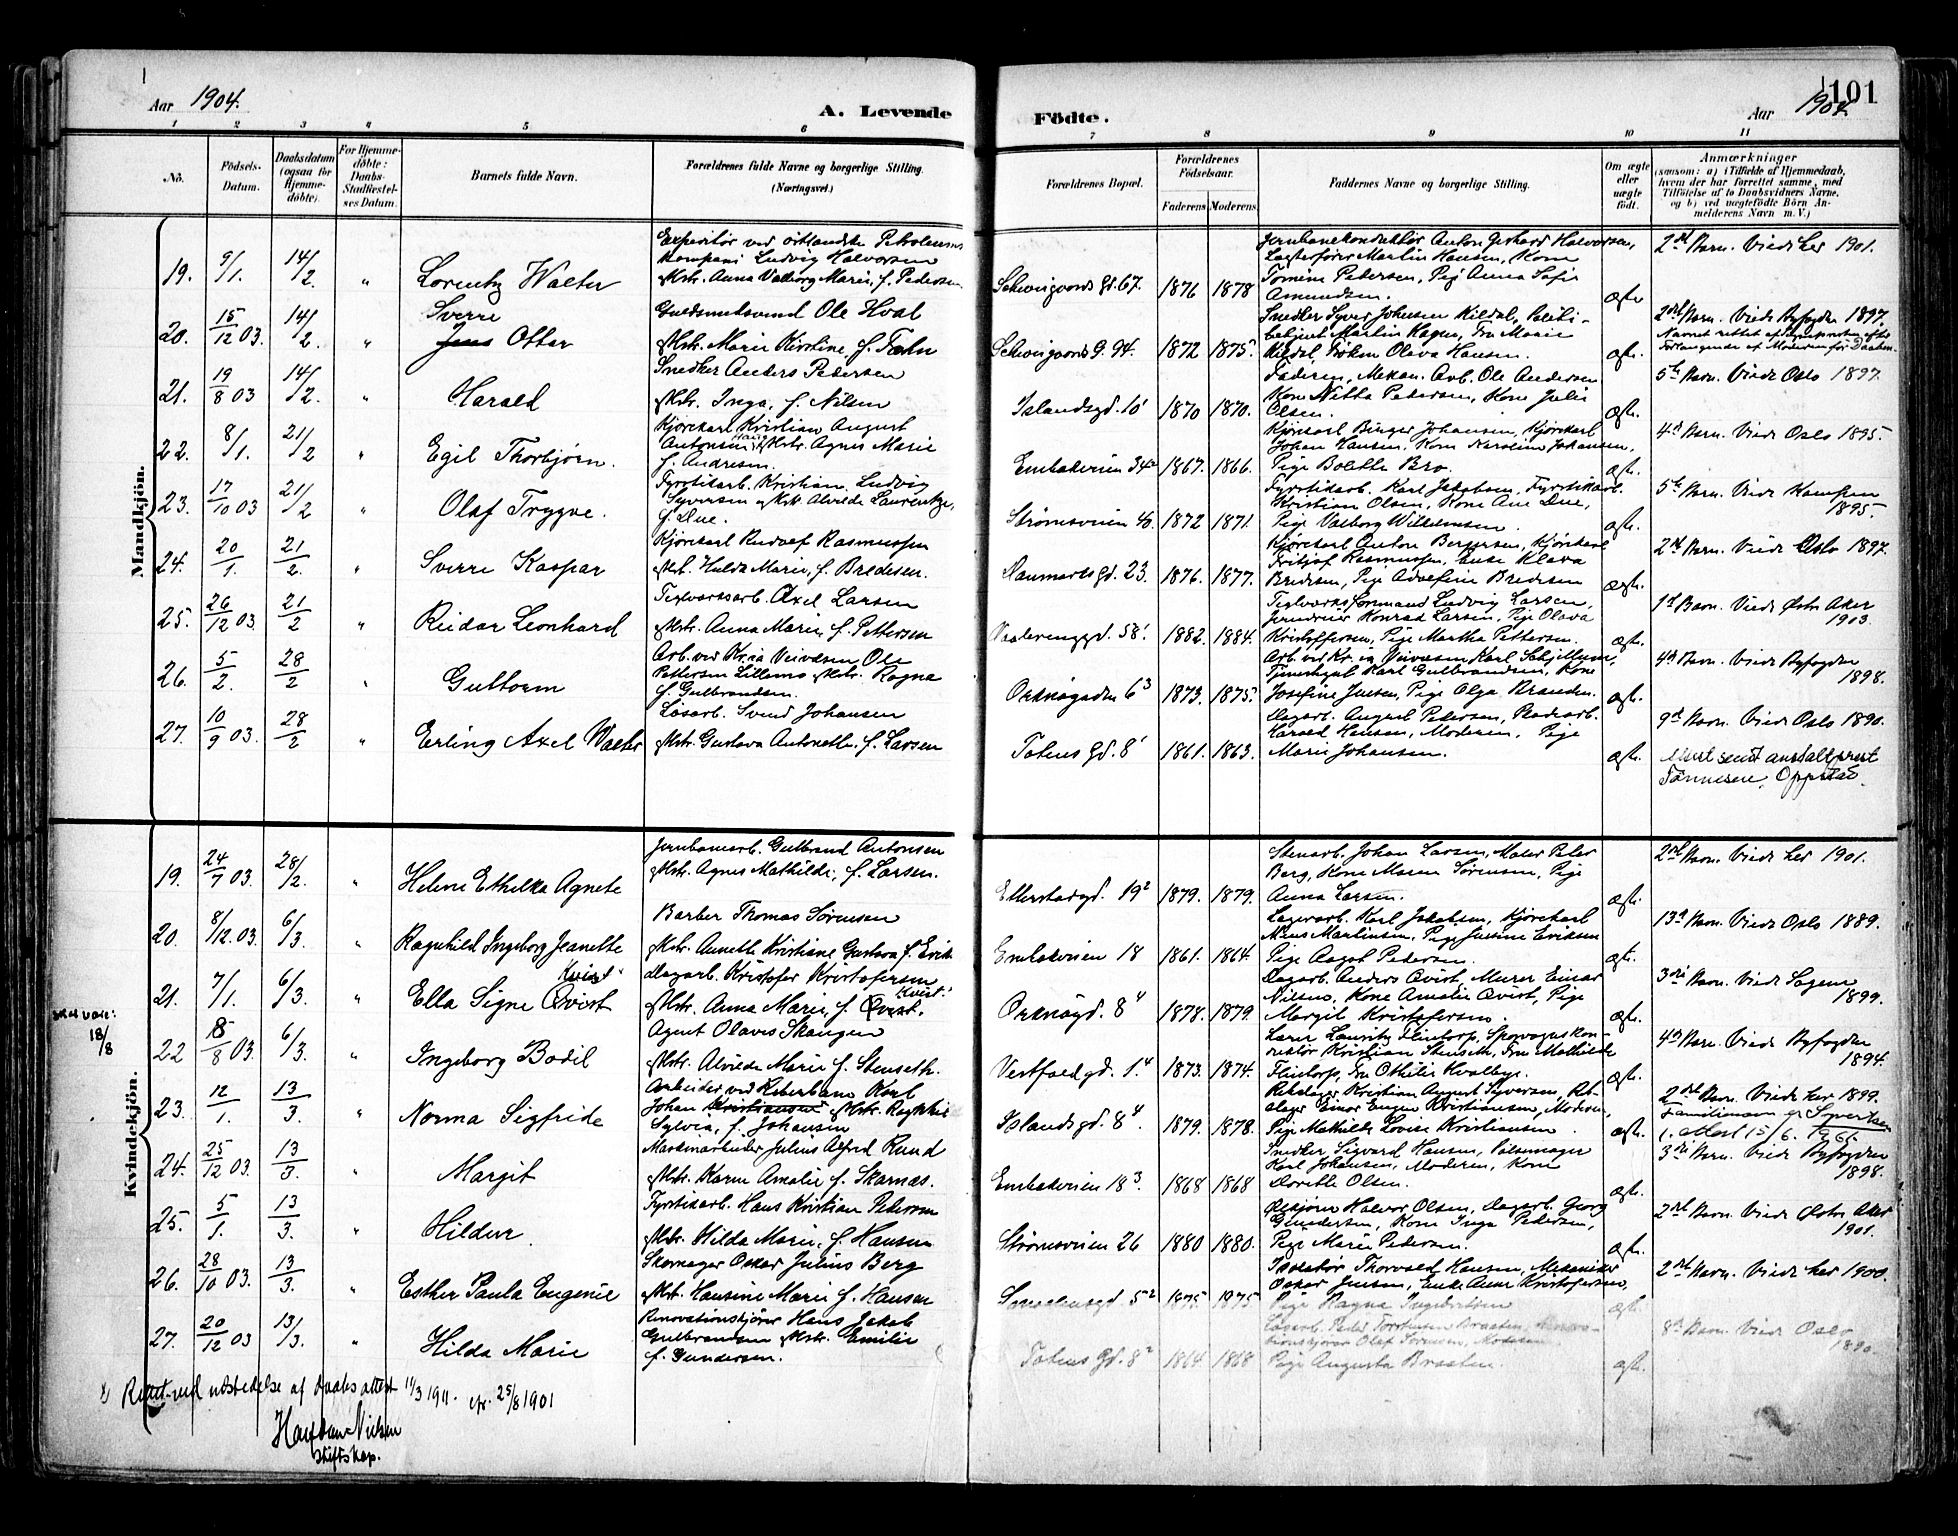 Aar 1904.
A. Levende
Födte.
Aar 1904.
101
1 2 3 4 5 6 7 8 9 10 11
No.
Födsels-Datum.
Daabsdatum (ogsaa for Hjemmedöbte).
For Hjemmedöbte: Daabs-Stadfæstelses Datum.
Barnets fulde Navn.
Forældrenes fulde Navne og borgerlige Stilling. (Næringsvei.)
Forældrenes Bopæl.
Forældrenes Födselsaar.
Faderens. Moderens.
Faddernes Navne og borgerlige Stilling.
Om ægte eller uægte födt.
Anmærkninger
(saasom: a) i Tilfælde af Hjemmedaab, hvem der har forrettet samme, med Tilföielse af to Daabsvidners Navne, og b) ved uægtefödte Börn Anmelderens Navn m. V.)
Mandkjön.
19. 9/1. 14/2. " Lorentz Walter
Expeditør ved østlandske Petroleums
Kompani Ludvig Halvorsen
Hstr. Anna Valborg Marie, f. Pedersen
Schweigaards gd. 67. 1876 1878
Jernbanekonduktør Anton Gerhard Halvorsen,
Lagerfører Martin Hansen, Kone
Tomine Pedersen, Pige Anna Sofie
Amundsen.
ægte
2det Barn. Viede her 1901.
20. 15/12 03. 14/2. " Sverre
Jens Ottar
Guldsmedsvend Ole Hval
Hstr. Marie Kirstine, f. Fæhn
Schweigaards G. 94. 1872 1875.
Snedker Syver Johnsen Kildal, Politi-
betjent Martin Hagen, Fru Marie
Kildal, Frøken Olava Hansen.
ægte.
2det Barn. Viede Byfogden 1897.
Navnet rettet af Sognepresten efter
Forlangende af Moderen før Daaben.
21. 19/8 03 14/2. " Harald
Snedker Anders Pedersen
Hstr. Inga, f. Nilsen
Islandsgd. 10 1870 1870.
Faderen, Mekan. Arb. Ole Andersen
Kone Nitta Pedersen, Kone Julie
Olsen.
ægte.
5te Barn. Viede Oslo 1897.
22. 8/1. 21/2 " Egil Thorbjørn.
Kjørekarl Kristian August
Antonsen, Hstr. Agnes Marie
f. Andresen.
Enebakveien 34 1867. 1866.
Kjørekarl Birger Johansen, Kjørekarl
Johan Hansen, Kone Karoline Johansen,
Pige Bolette Bro.
ægte.
4de Barn. Viede Oslo 1895.
23. 17/10 03 21/2 " Olaf Trygve.
Fyrstikarb. Kristian Ludvig
Syversen og Hstr. Alvilde Laurentze,
f. Due.
Strømsveien 40. 1872 1871.
Fyrstikarb. Karl Jakobsen, Fyrstikarb.
Kristian Olsen, Kone Ane Due,
Pige Valborg Wilhelmsen.
ægte.
5te Barn. Viede Kampen
1895.
24. 20/1. 21/2. " Sverre Kaspar
Kjørekarl Rudolf Rasmussen
Hstr. Hulda Marie, f. Bredesen.
Danmarks gd. 23. 1876. 1877.
Kjørekarl Anton Bergersen, Kjørekarl
Fritjof Rasmussen, Enke Klava
Bredesen, Pige Adolfine Bredesen
ægte.
2det Barn. Viede Oslo 1897.
25. 26/12 03. 21/2 " Reidar Leonhard
Teglværksarb. Axel Larsen
Hstr. Anna Marie, f. Pettersen
Vaalerenggd. 58. 1882. 1884.
Teglværksformand Ludvig Larsen,
Jerndreier Konrad Larsen, Pige Olava
Kristoffersen, Pige Martha Pettersen.
ægte.
1ste Barn. Viede Østre Aker
1903.
26. 5/2. 28/2 " Guttorm
Arb. ved Kr.ia Veivæsen, Ole
Pettersen Lillemo Hstr. Ragna
f. Gulbrandsen.
Orknøgaden 6 3 1873. 1875.
Arb. ved Kr. ia Veivæsen Karl Schjellum,
Karl Gulbrandsen, Kone
Josefine Jensen, Pige Olga Branden.
ægte.
4de Barn. Viede Byfogden
1898.
27. 10/9 03. 28/2 " Erling Axel Walter
Løsarb. Svend Johansen
Hstr. Gustava Antonette f. Larsen
Totens Gd. 8 1861. 1863.
Dagarb. August Pedersen,
Harald Hansen, Moderen, Pige
Marie Johansen.
ægte.
9de Barn. Viede Oslo 1890.
Attest sendt anstaltsprest
Tønnesen, Oppstad.
Kvindekjön.
19. 24/7 03. 28/2. " Helene Ethelka Agnete
Jernbanearb. Gulbrand Antonsen
Hstr. Agnes Mathilde, f. Larsen.
Etterstadgd. 19 2 1879. 1879.
Stenarb. Johan Larsen, Maler Peter
Berg, Kone Maren Sørensen, Pige
Anna Larsen.
ægte.
2det Barn. Viede her 1901.
20. 8/12. 03. 6/3. " Ragnhild Ingeborg Jeanette
Barber Thomas Sørensen
Hstr. Annette Kristiane Gustava f. Erik
Enebakveien 18 1861. 1864.
Lagerarb. Karl Jakobsen, Kjørekarl
Nils Martinsen, Pige Justine Eriksen
Pige Aagot Pedersen.
ægte.
13de Barn. Viede Oslo 1889.
21. 7/1. 6/3. " Ella Signe Qvist
Kvist
Dagarb. Kristofer Kristofersen
Hstr. Anna Marie, f. Qvist.
Kvist.
Orknøgd. 8 4 1878. 1879.
Dagarb. Anders Qvist, Murer Einar
Nilsen, Kone Amalie Qvist, Pige
Margit Kristofersen.
ægte.
3die Barn. Viede Sagene
1899.
skal være:
18/8
22 8/8 03. 6/3. " Ingeborg Bodil
Agent Olaves Skaugen
Hstr. Alvilde Marie f. Stenseth.
Vestfoldgd. 1. 4 1873. 1874.
Lærer Lauritz Flintorp, Sporvognskon-
duktør Kristian Stenseth, Fru Mathilde
Flintorp, Fru Othilie Kvalbye.
ægte.
4de Barn. Viede Byfogden
1894.
23. 12/1. 13/3. " Norma Sigfride
Arbeider ved Reberbane Karl
Johan Kristiansen Hstr. Ragnhild
Sylvia, f. Johansen
Islands gd. 8. 4 1879. 1878.
Rebslager Kristian August Syversen, Reb-
slager Einar Eugen Kristiansen, Moderen,
Pige Mathilde Lovise Kristiansen.
ægte.
2det Barn. Viede her 1899.
Familienavn er Syvertsen
1. Attest 15/6. 1961.
24. 25/12 03. 13/3. " Margit
Maskinarbeider Julius Alfred Rund
Hstr. Karen Amalie f. Skarnæs.
Enebakveien 18 3. 1868 1868
Snedker Sigvard Hansen, Pølsemager
Karl Johansen, Moderen, Kone
Dorette Olsen.
ægte.
3die Barn. Viede Byfogden
1898.
25. 5/1. 13/3. " Hildur.
Fyrstikarb. Hans Kristian Pedersen
Hstr. Hilda Marie, f. Hansen
Strømsveien 26 1880 1880.
Halvor Olsen, Dagarb. Georg
Gundersen, Kone Inga Pedersen,
Pige Marie Pedersen.
ægte.
2det Barn. Viede Østre Aker
1901.
26. 28/10 03. 13/3. " Esther Paula Eugenie
Skomager Oskar Julius Berg
Hstr. Hansine Marie f. Hansen
5 2 1875. 1875
Isolatør Thorvald Hansen, Mekaniker
Oskar Jensen, Enke Anne Kristofersen,
Pige Ragna Ingebretsen
ægte.
2det Barn. Viede her 1900.
27. 20/12 03 13/3. " Hilda Marie
Renovationskjører Hans Jakob
Gulbrandsen Hstr. Emilie
f. Gundersen.
Totens Gd. 8 2 1864 1868
Løsarb. Peder Torstensen Braaten, Renova-
tionskjører Olaf Sørensen, Moderen
Pige Augusta Braaten.
ægte.
8de Barn. Viede Oslo
1890.
Rettet ved udstedelse af daabsattest 11/3 1911. 25/8 1901
Halfdan Nielsen
stiftskap.